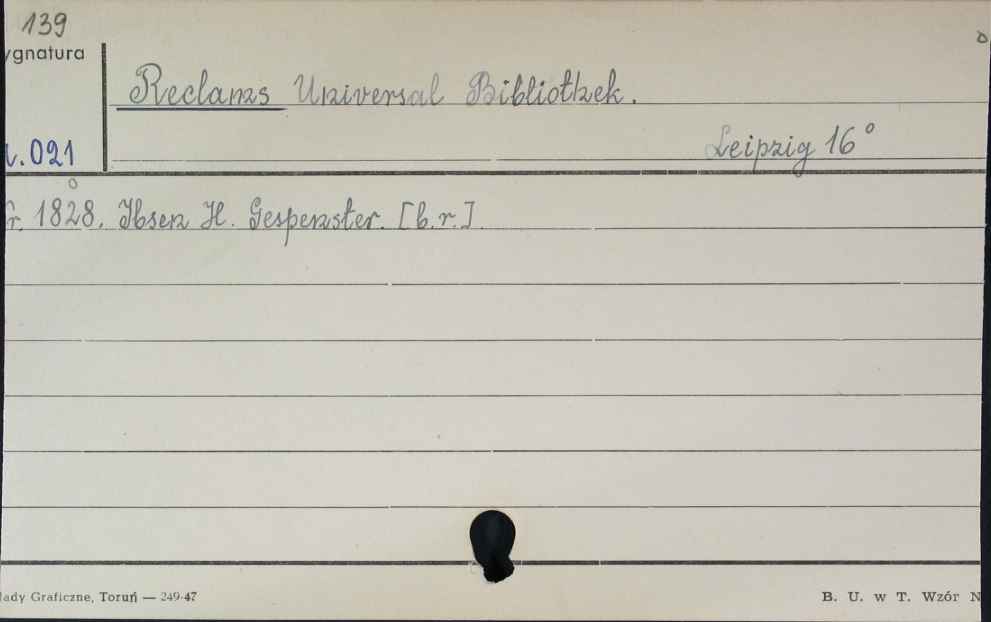 139
ygnatura
Reclams Universal Bibliothek.
Leipzig 16°
.021
r. 1828. Ibsen H. Gespenster. [b.r.]
łady Graficzne, Toruń — 249-47
B. U. w T. Wzór N